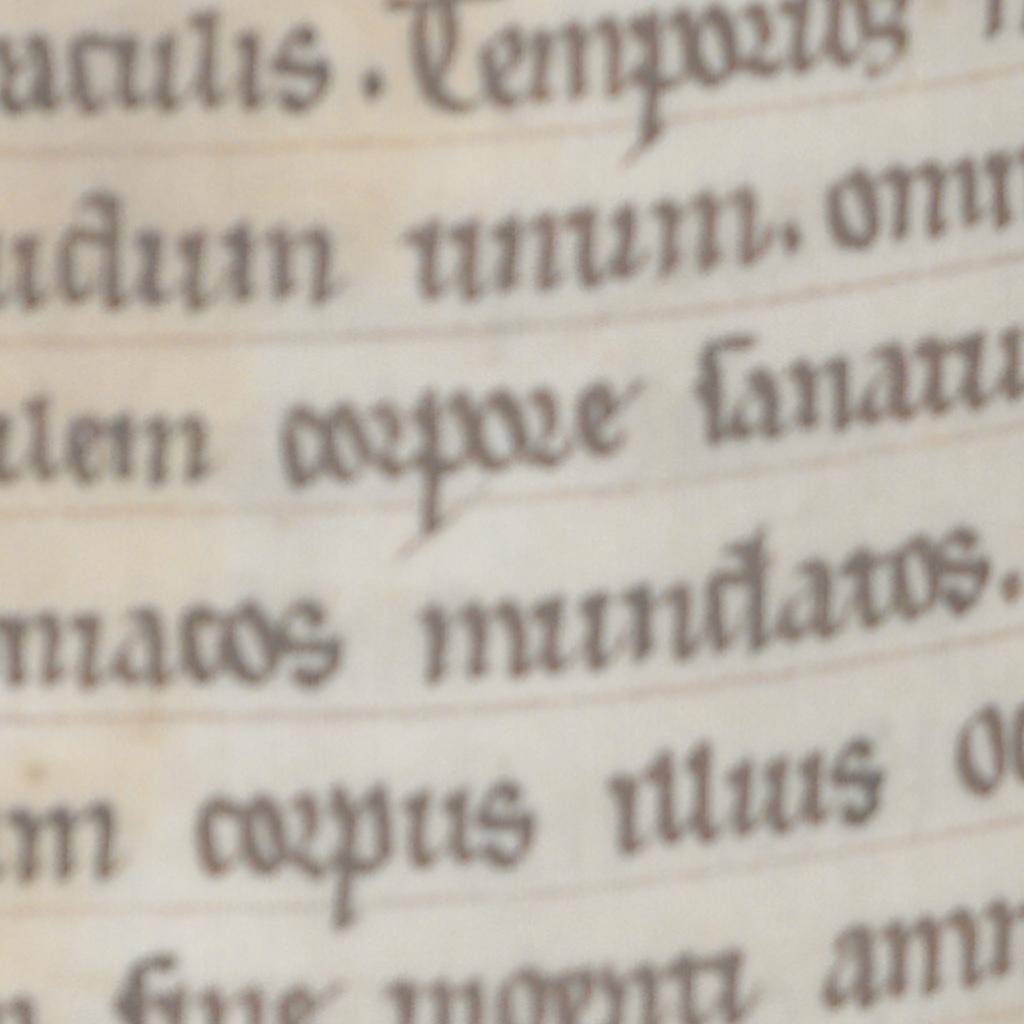 aculis. Temporibꝫ
udum unum. omn
alem corpore sanatu
niacos mundatos.
um corpus illius
sine ingenti